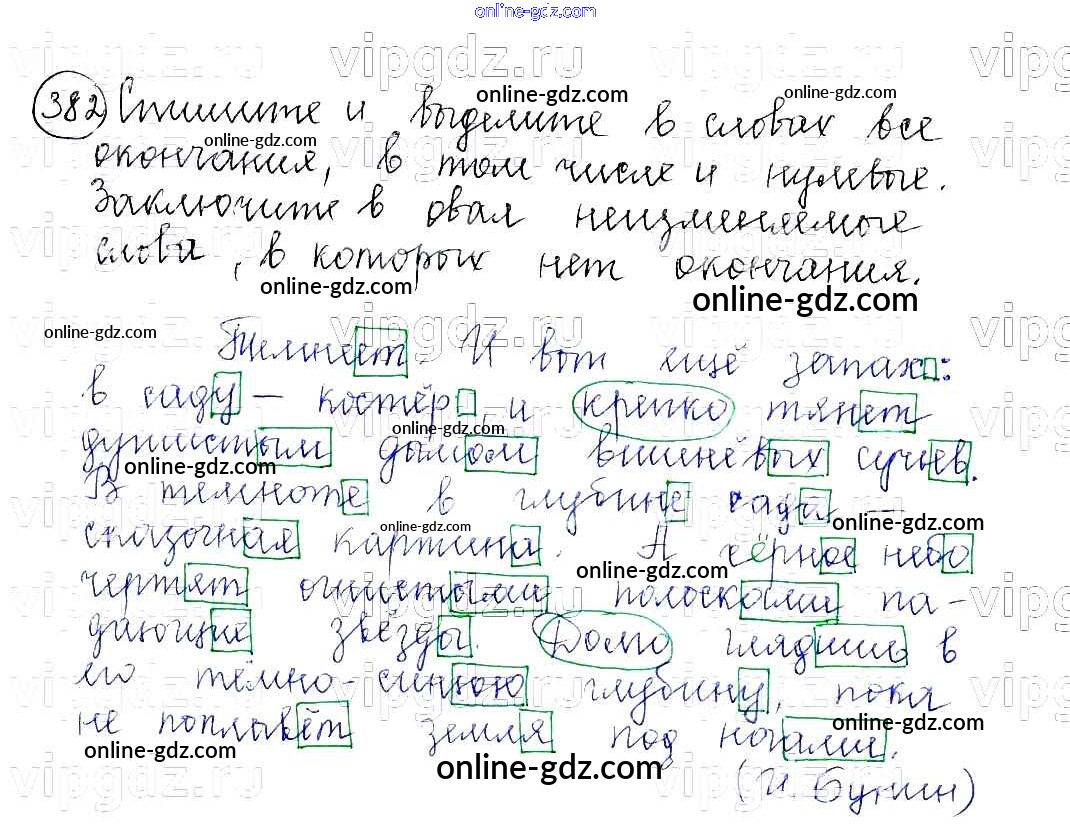 online-gdz.com
382 Спишите и выделите в словах все
окончания, в том числе и нулевые.
Заключите в овал неизменяемые
слова, в которых нет окончания.
Темнеет. И вот ещё запах:
в саду — костёр, и крепко тянет
душистым дымом вишнёвых сучьев.
В темноте в глубине сада —
сказочная картина. А чёрное небо
чертят огнистыми полосками па-
дающие звёзды. Долго глядишь в
его тёмно-синюю глубину, пока
не поплывёт земля под ногами.
(И. Бунин)